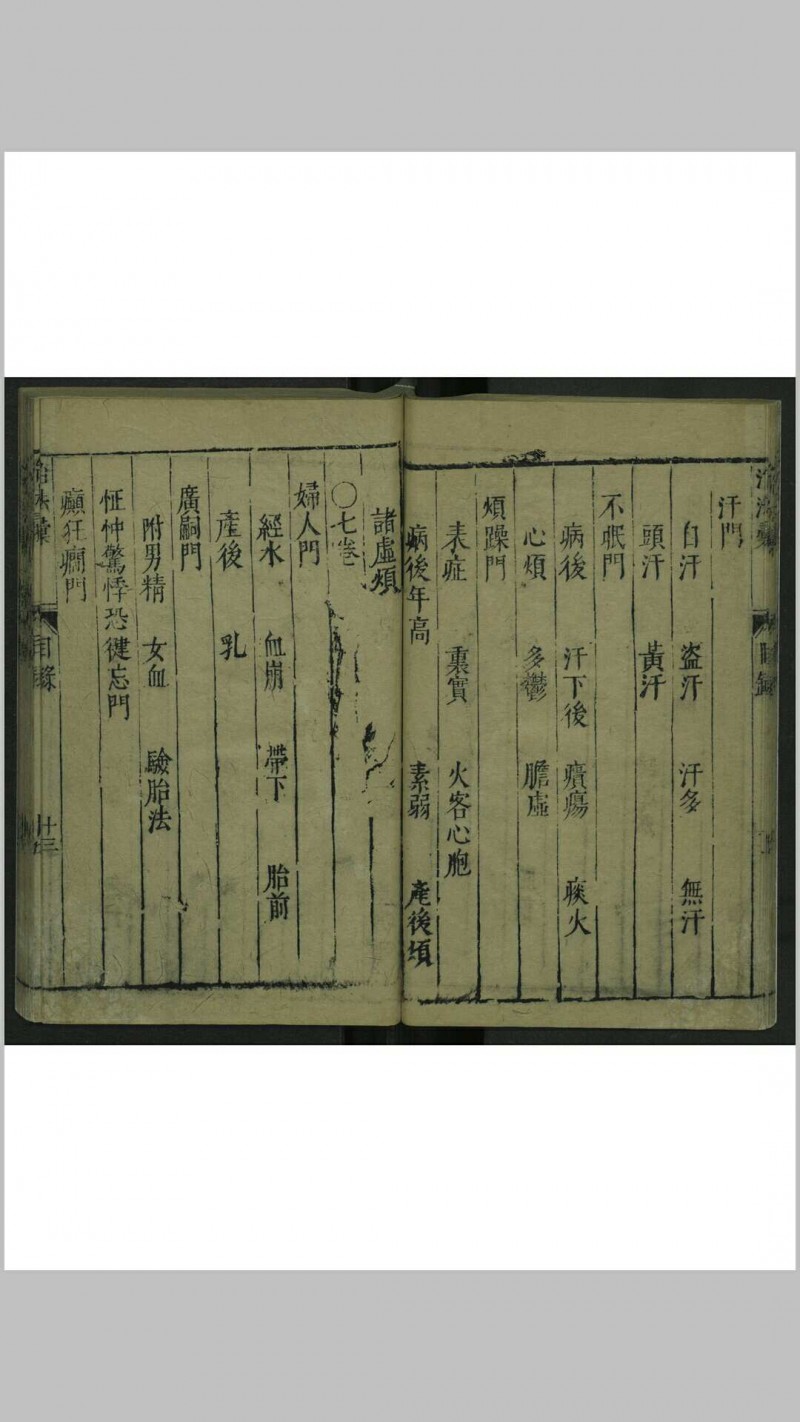 汗門
自汗 盗汗 汗多 無汗
頭汗 黃汗
不眠門
病後 汗下後 癀瘍 痰火
心煩 多鬱 膽虛
煩躁門
表症 裏實 火客心胞
病後年高 素弱 產後煩
諸虛煩
○七卷
婦人門
經水 血崩 帶下 胎前
產後 乳
廣嗣門
附男精 女血 驗胎法
怔忡驚悸恐健忘門
癲狂癇門
目錄 十三